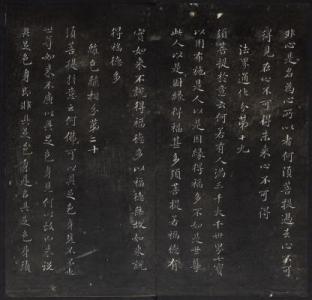 非心是名為心所以者何須菩提過去心不可
得見在心不可得未來心不可得
法界通化分第十九
須菩提於意云何若有人滿三千大千世界七寶
以用布施是人以是因緣得福多不如是世尊
此人以是因緣得福甚多須菩提若福德有
實如來不說得福德多以福德無故如來說
得福德多
離色離相分第二十
須菩提於意云何佛可以具足色身見不不也
世尊如來不應以具足色身見何以故如來說
具足色身即非具足色身是名具足色身須